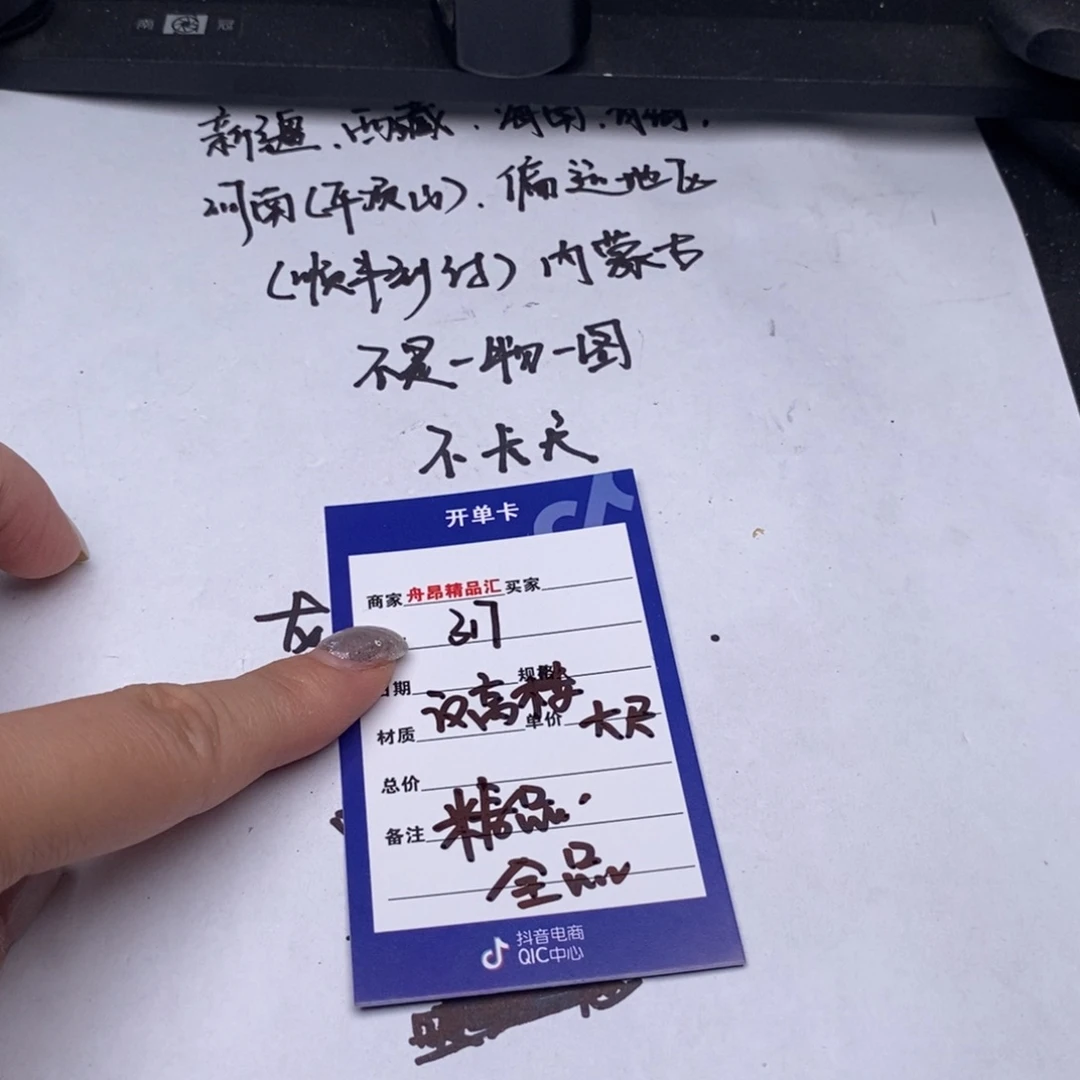 南 冠
新疆、西藏、海南、青海、
河南(平顶山)、偏远地区
(顺丰到付)内蒙古
不是一物一图
不卡尺
开单卡
商家 舟昂精品汇 买家
317
日期 规格
汉高 大尺
材质 单价
总价
备注 精品.
全品
抖音电商
QIC中心